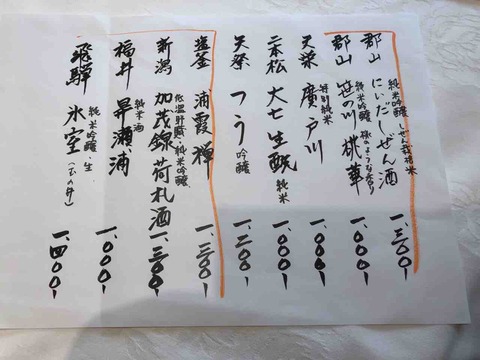 郡山 にいだしぜん酒 純米吟醸 しぜん栽培米 一、三〇〇
郡山 笹の川 桃華 純米吟醸 桃のような香り 一、〇〇〇
天栄 廣戸川 特別純米 一、〇〇〇
二本松 大七 生酛 純米 一、〇〇〇
天栄 つう 吟醸 一、二〇〇
塩釜 浦霞 禅 純米吟醸 一、三〇〇
新潟 加茂錦 荷札酒 低温貯蔵 純米吟醸 一、三〇〇
福井 昇瀬浦 純米酒 一、〇〇〇
飛騨 氷室 純米吟醸・生 一、四〇〇